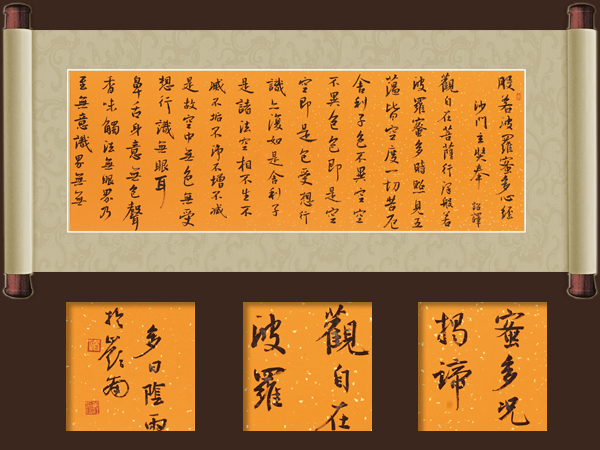 般若波羅蜜多心經
沙門玄奘奉 詔譯
觀自在菩薩行深般若
波羅蜜多時照見五
蘊皆空度一切苦厄
舍利子色不異空空
不異色色即是空
空即是色受想行
識亦復如是舍利子
是諸法空相不生不
滅不垢不淨不增不減
是故空中無色無受
想行識無眼耳
鼻舌身意無色聲
香味觸法無眼界乃
至無意識界無無
多日陰雨
於嶺南
觀自在
波羅
蜜多咒
揭諦